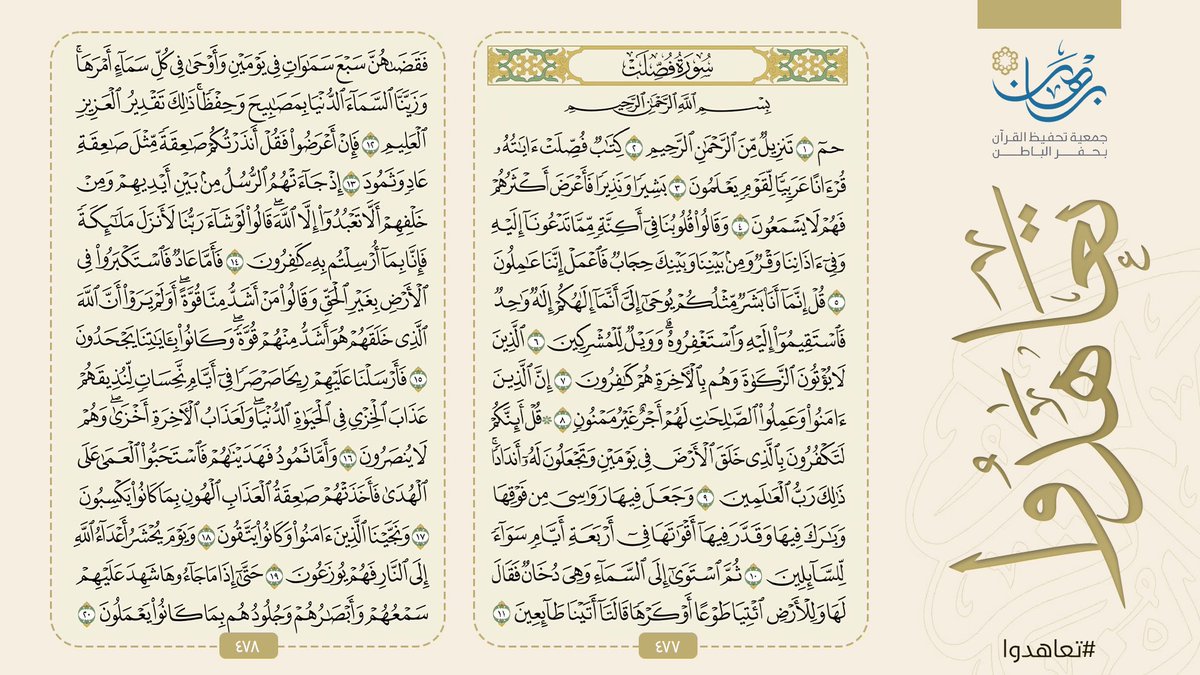 برهان
جمعية تحفيظ القرآن
بحفر الباطن
تعاهدوا
#تعاهدوا
سُورَةُ فُصِّلَتْ
بِسْمِ ٱللَّهِ ٱلرَّحْمَٰنِ ٱلرَّحِيمِ
حمٓ ١ تَنزِيلٌ مِّنَ ٱلرَّحْمَٰنِ ٱلرَّحِيمِ ٢ كِتَٰبٌ فُصِّلَتْ ءَايَٰتُهُۥ
قُرْءَانًا عَرَبِيًّا لِّقَوْمٍ يَعْلَمُونَ ٣ بَشِيرًا وَنَذِيرًا فَأَعْرَضَ أَكْثَرُهُمْ
فَهُمْ لَا يَسْمَعُونَ ٤ وَقَالُوا۟ قُلُوبُنَا فِىٓ أَكِنَّةٍ مِّمَّا تَدْعُونَآ إِلَيْهِ
وَفِىٓ ءَاذَانِنَا وَقْرٌ وَمِنۢ بَيْنِنَا وَبَيْنِكَ حِجَابٌ فَٱعْمَلْ إِنَّنَا عَٰمِلُونَ
٥ قُلْ إِنَّمَآ أَنَا۠ بَشَرٌ مِّثْلُكُمْ يُوحَىٰٓ إِلَىَّ أَنَّمَآ إِلَٰهُكُمْ إِلَٰهٌ وَٰحِدٌ
فَٱسْتَقِيمُوٓا۟ إِلَيْهِ وَٱسْتَغْفِرُوهُ ۗ وَوَيْلٌ لِّلْمُشْرِكِينَ ٦ ٱلَّذِينَ
لَا يُؤْتُونَ ٱلزَّكَوٰةَ وَهُم بِٱلْءَاخِرَةِ هُمْ كَٰفِرُونَ ٧ إِنَّ ٱلَّذِينَ
ءَامَنُوا۟ وَعَمِلُوا۟ ٱلصَّٰلِحَٰتِ لَهُمْ أَجْرٌ غَيْرُ مَمْنُونٍ ٨ ۞ قُلْ أَئِنَّكُمْ
لَتَكْفُرُونَ بِٱلَّذِى خَلَقَ ٱلْأَرْضَ فِى يَوْمَيْنِ وَتَجْعَلُونَ لَهُۥٓ أَندَادًا ۚ
ذَٰلِكَ رَبُّ ٱلْعَٰلَمِينَ ٩ وَجَعَلَ فِيهَا رَوَٰسِىَ مِن فَوْقِهَا
وَبَٰرَكَ فِيهَا وَقَدَّرَ فِيهَآ أَقْوَٰتَهَا فِىٓ أَرْبَعَةِ أَيَّامٍ سَوَآءً
لِّلسَّآئِلِينَ ١٠ ثُمَّ ٱسْتَوَىٰٓ إِلَى ٱلسَّمَآءِ وَهِىَ دُخَانٌ فَقَالَ
لَهَا وَلِلْأَرْضِ ٱئْتِيَا طَوْعًا أَوْ كَرْهًا قَالَتَآ أَتَيْنَا طَآئِعِينَ ١١
٤٧٧
فَقَضَىٰهُنَّ سَبْعَ سَمَٰوَاتٍ فِى يَوْمَيْنِ وَأَوْحَىٰ فِى كُلِّ سَمَآءٍ أَمْرَهَا ۚ
وَزَيَّنَّا ٱلسَّمَآءَ ٱلدُّنْيَا بِمَصَٰبِيحَ وَحِفْظًا ۚ ذَٰلِكَ تَقْدِيرُ ٱلْعَزِيزِ
ٱلْعَلِيمِ ١٢ فَإِنْ أَعْرَضُوا۟ فَقُلْ أَنذَرْتُكُمْ صَٰعِقَةً مِّثْلَ صَٰعِقَةِ
عَادٍ وَثَمُودَ ١٣ إِذْ جَآءَتْهُمُ ٱلرُّسُلُ مِنۢ بَيْنِ أَيْدِيهِمْ وَمِنْ
خَلْفِهِمْ أَلَّا تَعْبُدُوٓا۟ إِلَّا ٱللَّهَ ۖ قَالُوا۟ لَوْ شَآءَ رَبُّنَا لَأَنزَلَ مَلَٰٓئِكَةً
فَإِنَّا بِمَآ أُرْسِلْتُم بِهِۦ كَٰفِرُونَ ١٤ فَأَمَّا عَادٌ فَٱسْتَكْبَرُوا۟ فِى
ٱلْأَرْضِ بِغَيْرِ ٱلْحَقِّ وَقَالُوا۟ مَنْ أَشَدُّ مِنَّا قُوَّةً ۖ أَوَلَمْ يَرَوْا۟ أَنَّ ٱللَّهَ
ٱلَّذِى خَلَقَهُمْ هُوَ أَشَدُّ مِنْهُمْ قُوَّةً ۖ وَكَانُوا۟ بِـَٔايَٰتِنَا يَجْحَدُونَ
١٥ فَأَرْسَلْنَا عَلَيْهِمْ رِيحًا صَرْصَرًا فِىٓ أَيَّامٍ نَّحِسَاتٍ لِّنُذِيقَهُمْ
عَذَابَ ٱلْخِزْىِ فِى ٱلْحَيَوٰةِ ٱلدُّنْيَا ۖ وَلَعَذَابُ ٱلْءَاخِرَةِ أَخْزَىٰ ۖ وَهُمْ
لَا يُنصَرُونَ ١٦ وَأَمَّا ثَمُودُ فَهَدَيْنَٰهُمْ فَٱسْتَحَبُّوا۟ ٱلْعَمَىٰ عَلَى
ٱلْهُدَىٰ فَأَخَذَتْهُمْ صَٰعِقَةُ ٱلْعَذَابِ ٱلْهُونِ بِمَا كَانُوا۟ يَكْسِبُونَ
١٧ وَنَجَّيْنَا ٱلَّذِينَ ءَامَنُوا۟ وَكَانُوا۟ يَتَّقُونَ ١٨ وَيَوْمَ يُحْشَرُ أَعْدَآءُ ٱللَّهِ
إِلَى ٱلنَّارِ فَهُمْ يُوزَعُونَ ١٩ حَتَّىٰٓ إِذَا مَا جَآءُوهَا شَهِدَ عَلَيْهِمْ
سَمْعُهُمْ وَأَبْصَٰرُهُمْ وَجُلُودُهُم بِمَا كَانُوا۟ يَعْمَلُونَ ٢٠
٤٧٨